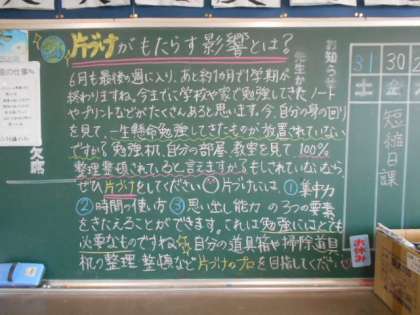 片づけがもたらす影響とは?
6月も最後の週に入り、あと約1か月で1学期が
終わりますね。今までに学校や家で勉強してきたノート
やプリントなどがたくさんあると思います。今、自分の身の回り
を見て、一生懸命勉強してきたものが放置されていない
ですか?勉強机、自分の部屋、教室を見て100%
整理整頓されていると言えますか?もしされていないなら
ぜひ片づけをしてください。片づけには①集中力
②時間の使い方③思い出し能力の3つの要素
をきたえることができます。これは勉強にはとても
必要なものですね。自分の道具箱や掃除道具
机の整理整頓など片づけのプロを目指してください
お知らせ
先生から
31 30
土 金
短縮日課
欠席
お休み